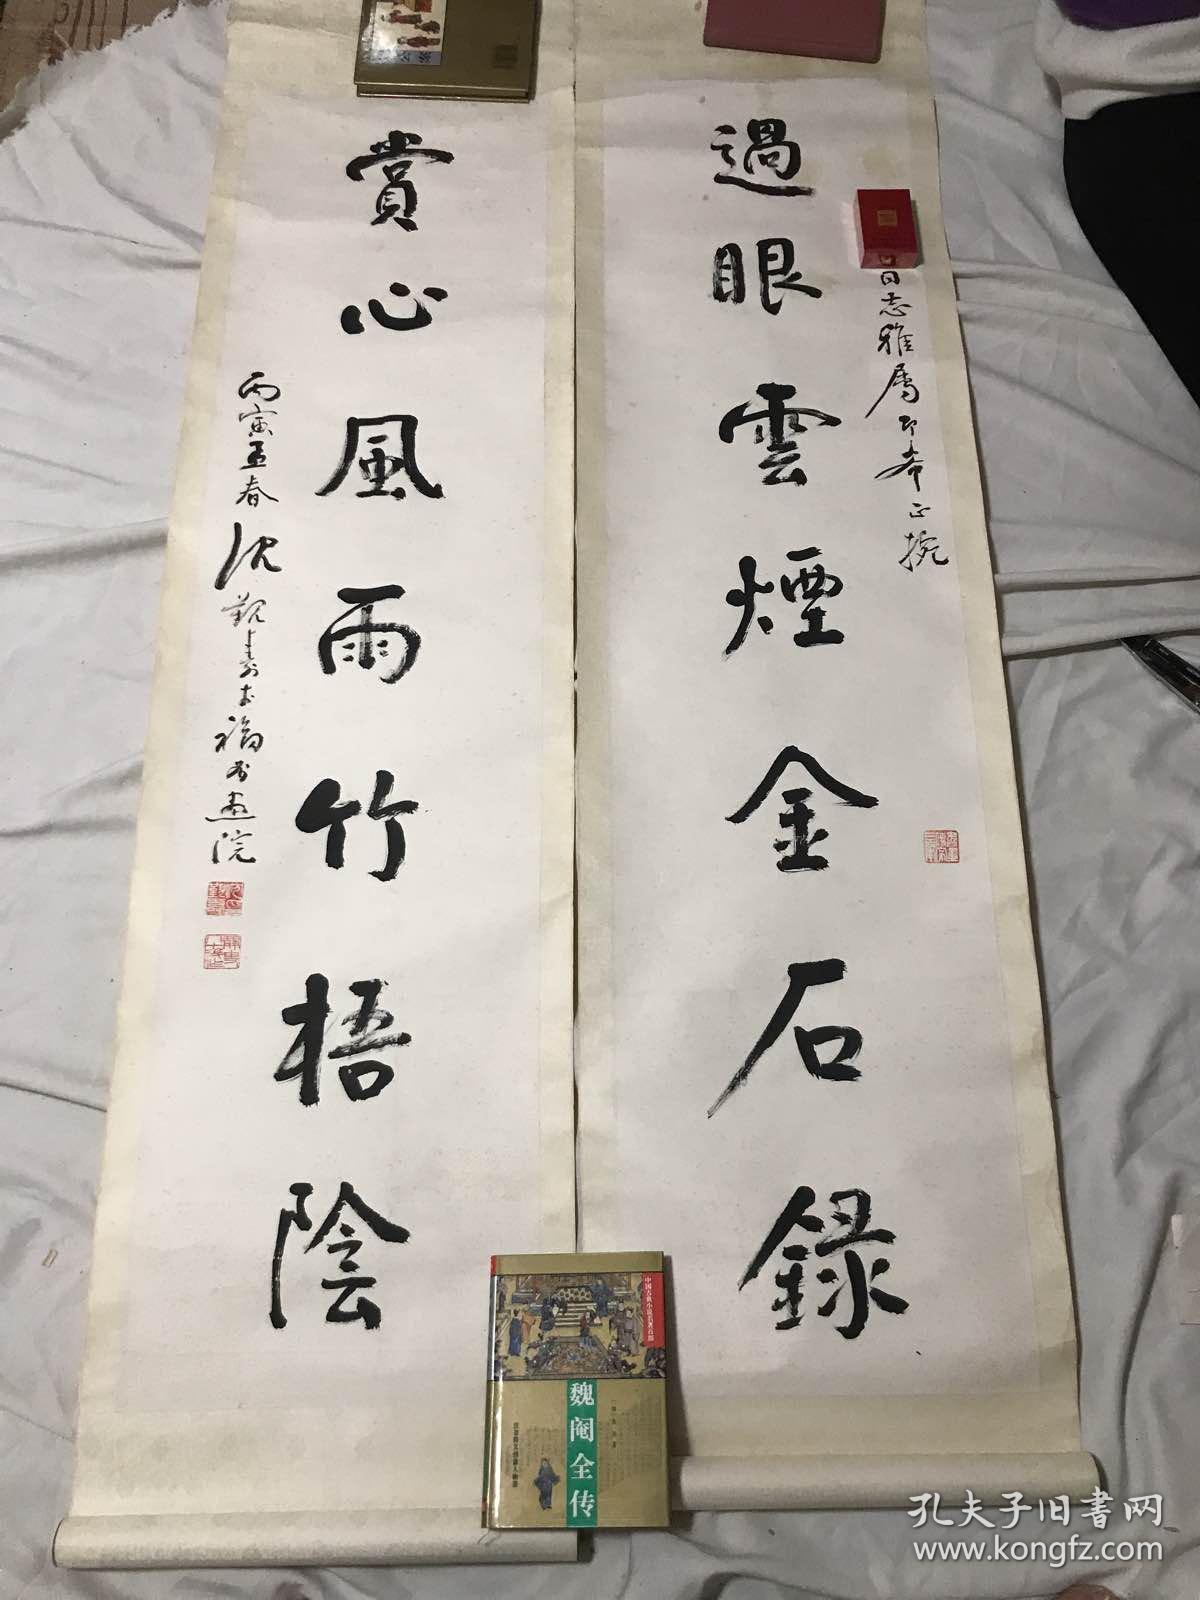 過眼雲煙金石録
同志雅属即希正捥
賞心風雨竹梧陰
丙寅孟春沈觀壽於福州画院
中国古典小说名著百部
魏阉全传
孔夫子旧书网
www.kongfz.com